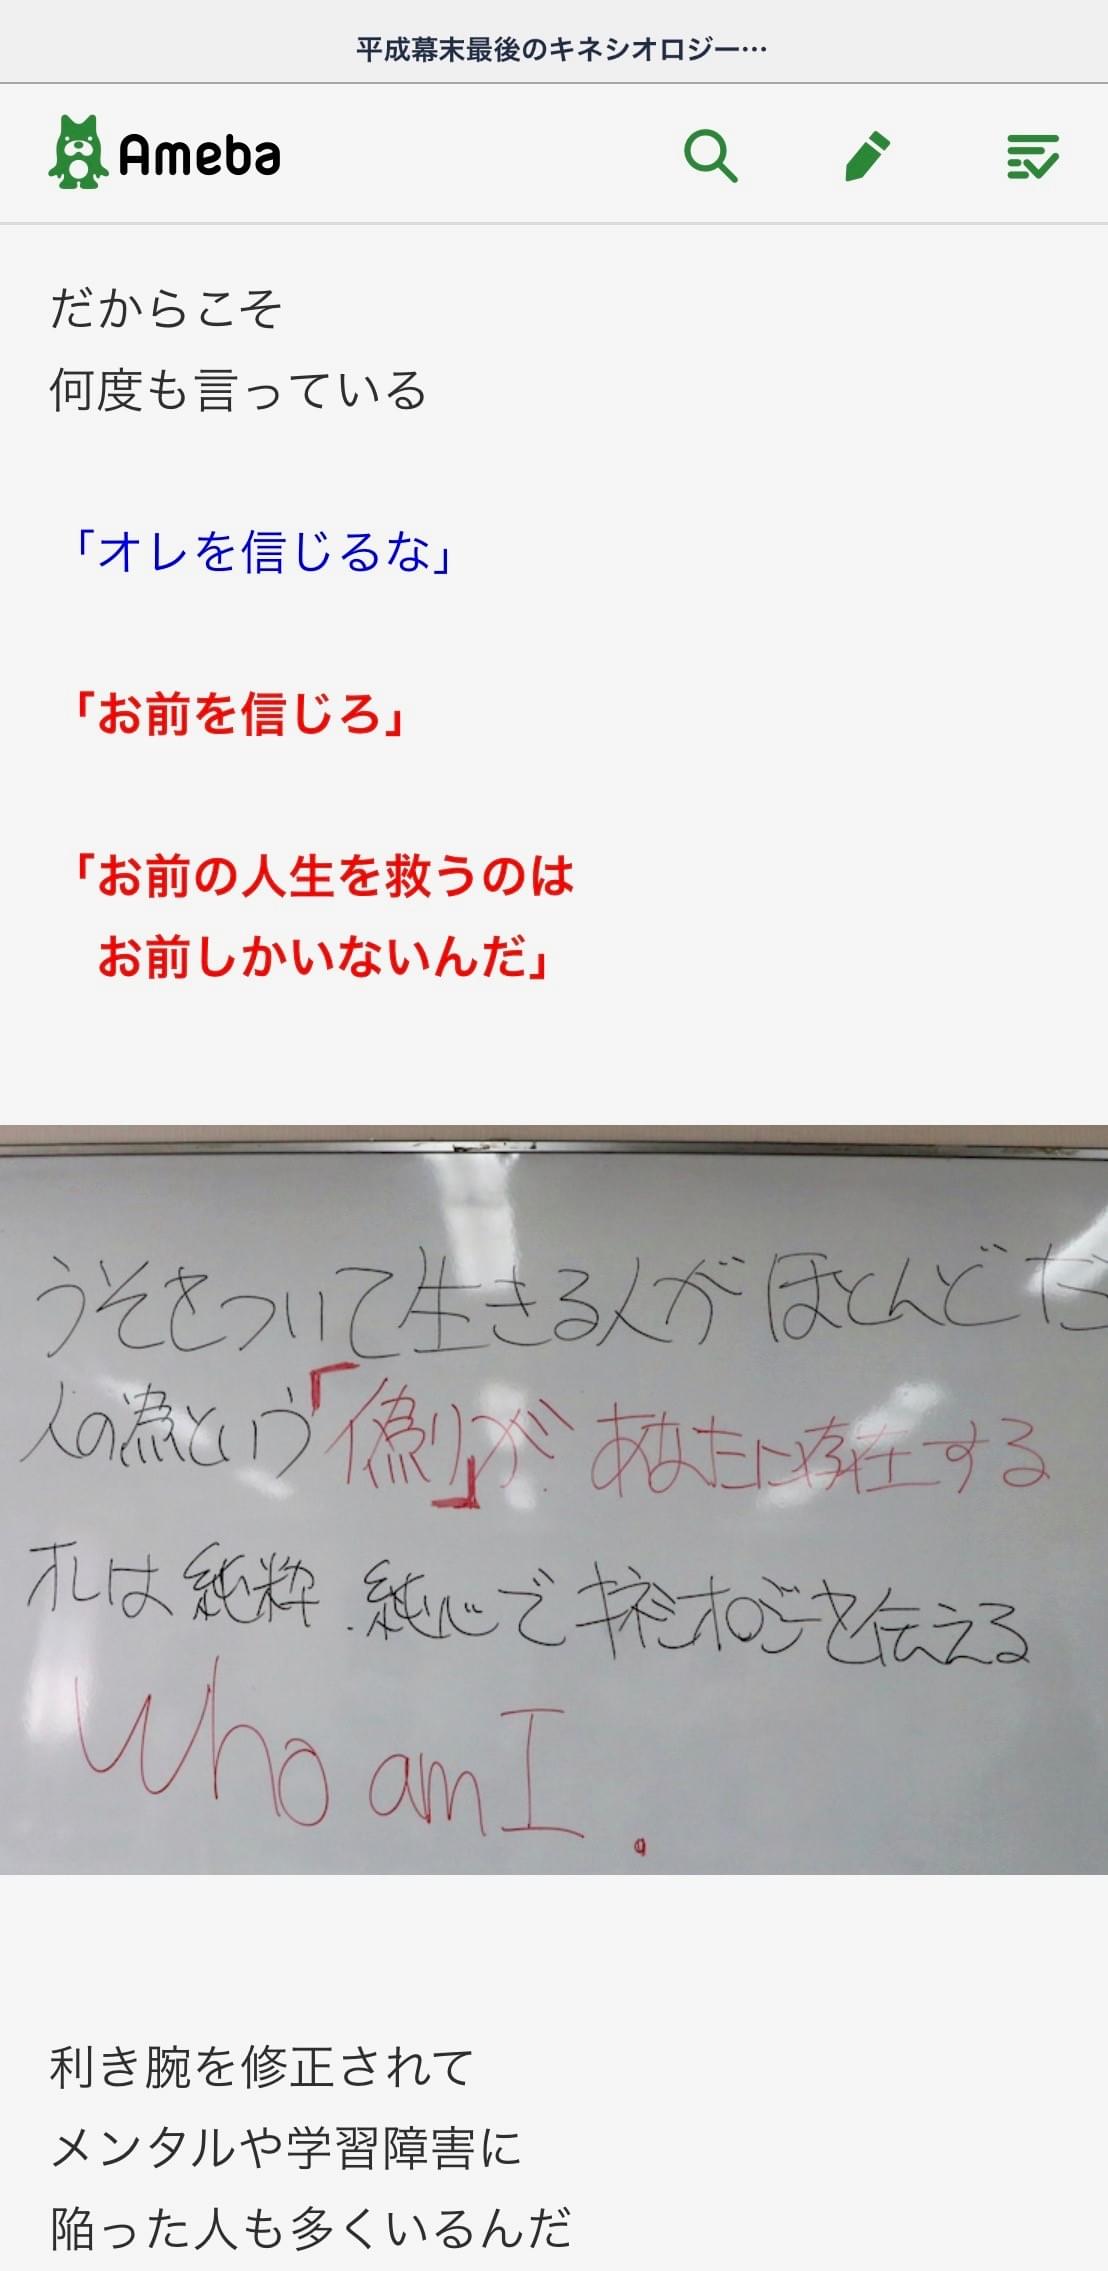 平成幕末最後のキネシオロジー…
Ameba
だからこそ
何度も言っている
「オレを信じるな」
「お前を信じろ」
「お前の人生を救うのは
お前しかいないんだ」
うそをついて生きる人がほとんどだ
人の為という「偽り」が あなたに存在する
オレは純粋.純心でキネシオロジーを伝える
Who am I.
利き腕を修正されて
メンタルや学習障害に
陥った人も多くいるんだ